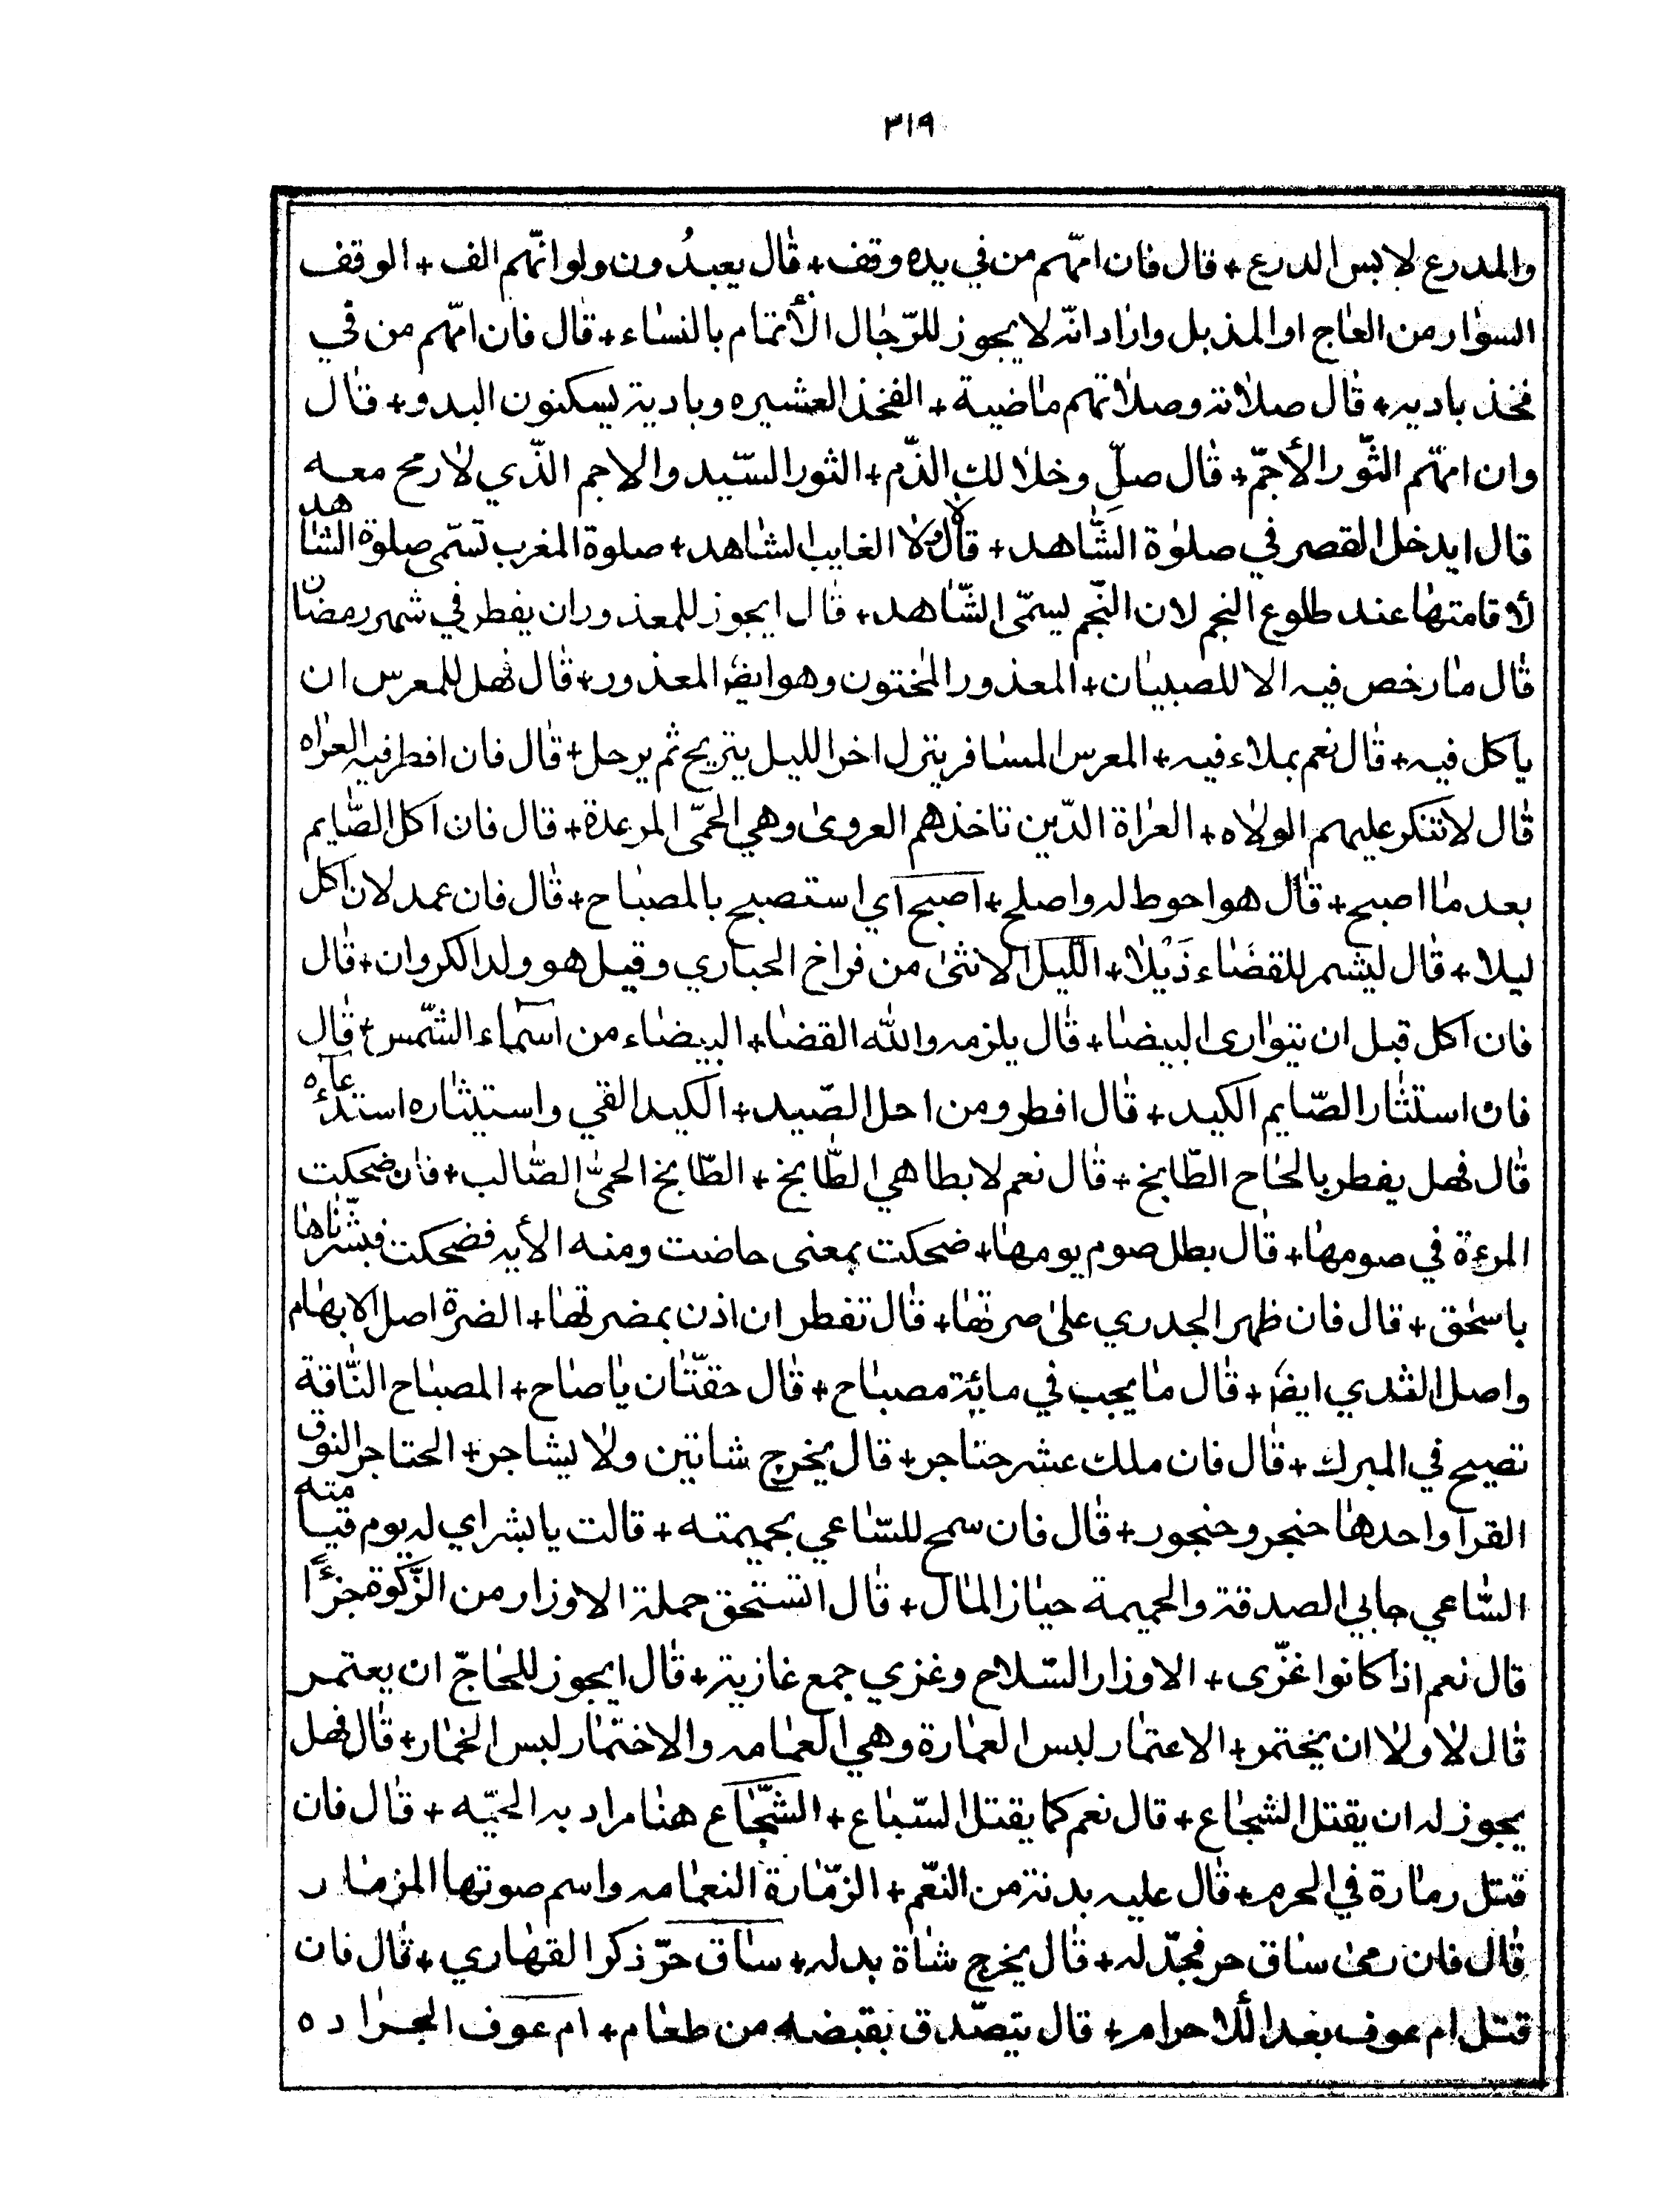 ٣١٩
والمدرع لابس الدرع + قال فان امّهم من في يده وقف + قال يعيدُون ولو انّهم الف + الوقف
السوار من العاج او المذبل واراد انّه لا يجوز للرّجال الأتمام بالنساء + قال فان امّهم من في
فخذ باديه + قال صلاته وصلاتهم ماضية + الفخذ العشيره وبادية يسكنون البدو + قال
وان امّهم الثّور الأجمّ + قال صلِّ وخلا لك الذّم + الثور السّيد والاجم الذّي لا رمح معه
قال ايدخل القصر في صلوة الشّاهد + قال لا ولا الغايب الشاهد + صلوة المغرب تسمّى صلوة الشاهد
لأقامتها عند طلوع النجم لان النّجم يسمّى الشّاهد + قال ايجوز للمعذور ان يفطر في شهر رمضان
قال ما رخص فيه الا للصبيان + المعذور المختون وهو ايضا المعذور + قال فهل للمعرس ان
ياكل فيه + قال نعم بملاء فيه + المعرس المسافر ينزل اخر الليل يتريح ثم يرحل + قال فان افطر فيه العراه
قال لا تنكر عليهم الولاه + العراة الدّين تاخذهم العروى وهي الحمّى المرعدة + قال فان اكل الصّايم
بعد ما اصبح + قال هو احوط له واصلح + اصبح اي استصبح بالمصباح + قال فان عمد لان اكل
ليلا + قال ليشمر للقضاء ذَيْلا + اللّيل الانثى من فراخ الحباري وقيل هو ولد الكروان + قال
فان اكل قبل ان يتوارى البيضا + قال يلزمه والله القضا + البيضاء من اسماء الشّمس + قال
فان استثار الصّايم الكيد + قال افطر ومن احل الصّيد + الكيد القي واستيثاره استدعآءه
قال فهل يفطر بالحاح الطّابخ + قال نعم لا بطاهي الطّابخ + الطّابخ الحمىّ الصّالب + فان ضحكت
المرءة في صومها + قال بطل صوم يومها + ضحكت بمعنى حاضت ومنه الأيه فضحكت فبشّرناها
باسحٰق + قال فان ظهر الجدري على ضرتها + قال تفطر ان اذن بمضرتها + الضرة اصل الابهام
واصل الثدي ايضا + قال ما يجب في مائة مصباح + قال حقّتان يا صاح + المصباح النّاقة
تصيح في المبرك + قال فان ملك عشر حناجر + قال يخرج شاتين ولا يشاجر + الحناجر النوق
القرا واحدها حنجر وحنجور + قال فان سمح للسّاعي بحميمته + قالت يا بشراي له يوم قيامته
السّاعي جابي الصدقة والحميمة حياز المال + قال اتستحق حملة الاوزار من الزّكوة جزءًا
قال نعم اذا كانوا غزّى + الاوزار السّلاح وغزي جمع غازية + قال ايجوز للحاجّ ان يعتمر
قال لا ولا ان يختمر + الاعتمار لبس العمارة وهي العمامه والاختمار لبس الخمار + قال فهل
يجوز له ان يقتل الشجاع + قال نعم كما يقتل السّباع + الشّجّاع هنا مراد به الحيّه + قال فان
قتل رمارة في الحرم + قال عليه بدنة من النّعم + الزّمّارة النعامه واسم صوتها المزمار
قال فان رمى ساق حر فجدّله + قال يخرج شاة بدله + ساق حرّ ذكر القهاري + قال فان
قتل ام عوف بعد اللأحرام + قال يتصّدق بقبضه من طعام + ام عوف الجراده